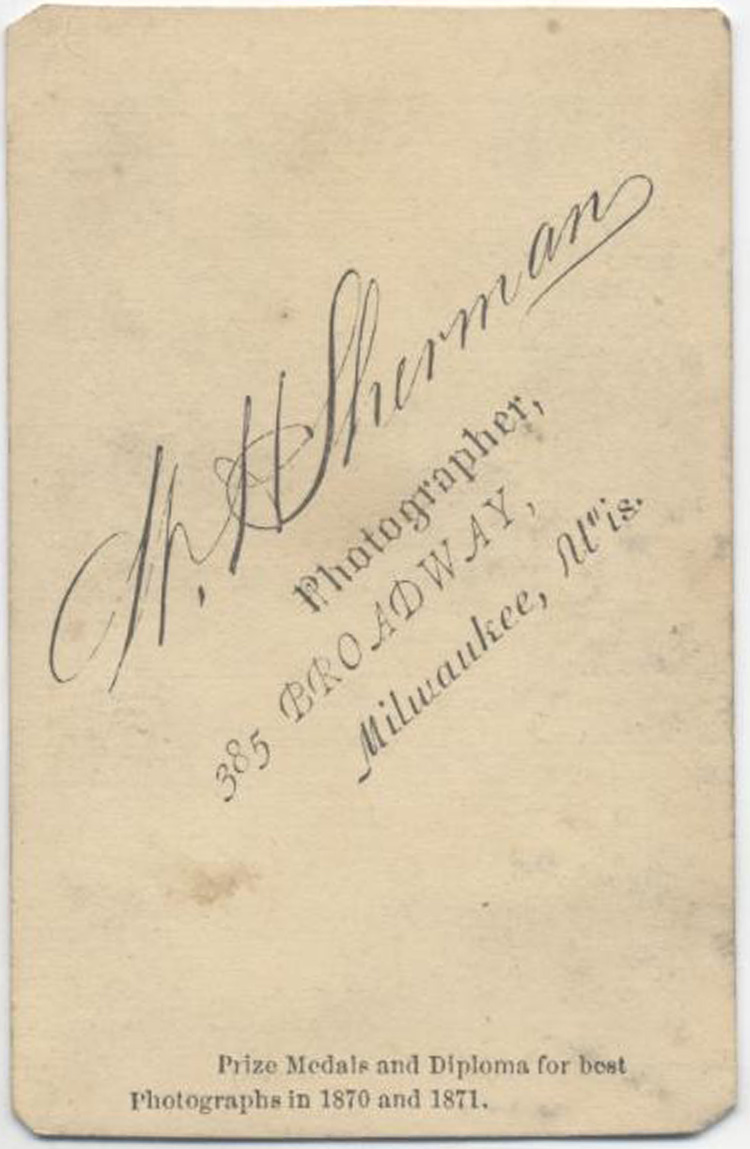 W. H Sherman
Photographer,
385 BROADWAY,
Milwaukee, Wis.
Prize Medals and Diploma for best
Photographs in 1870 and 1871.